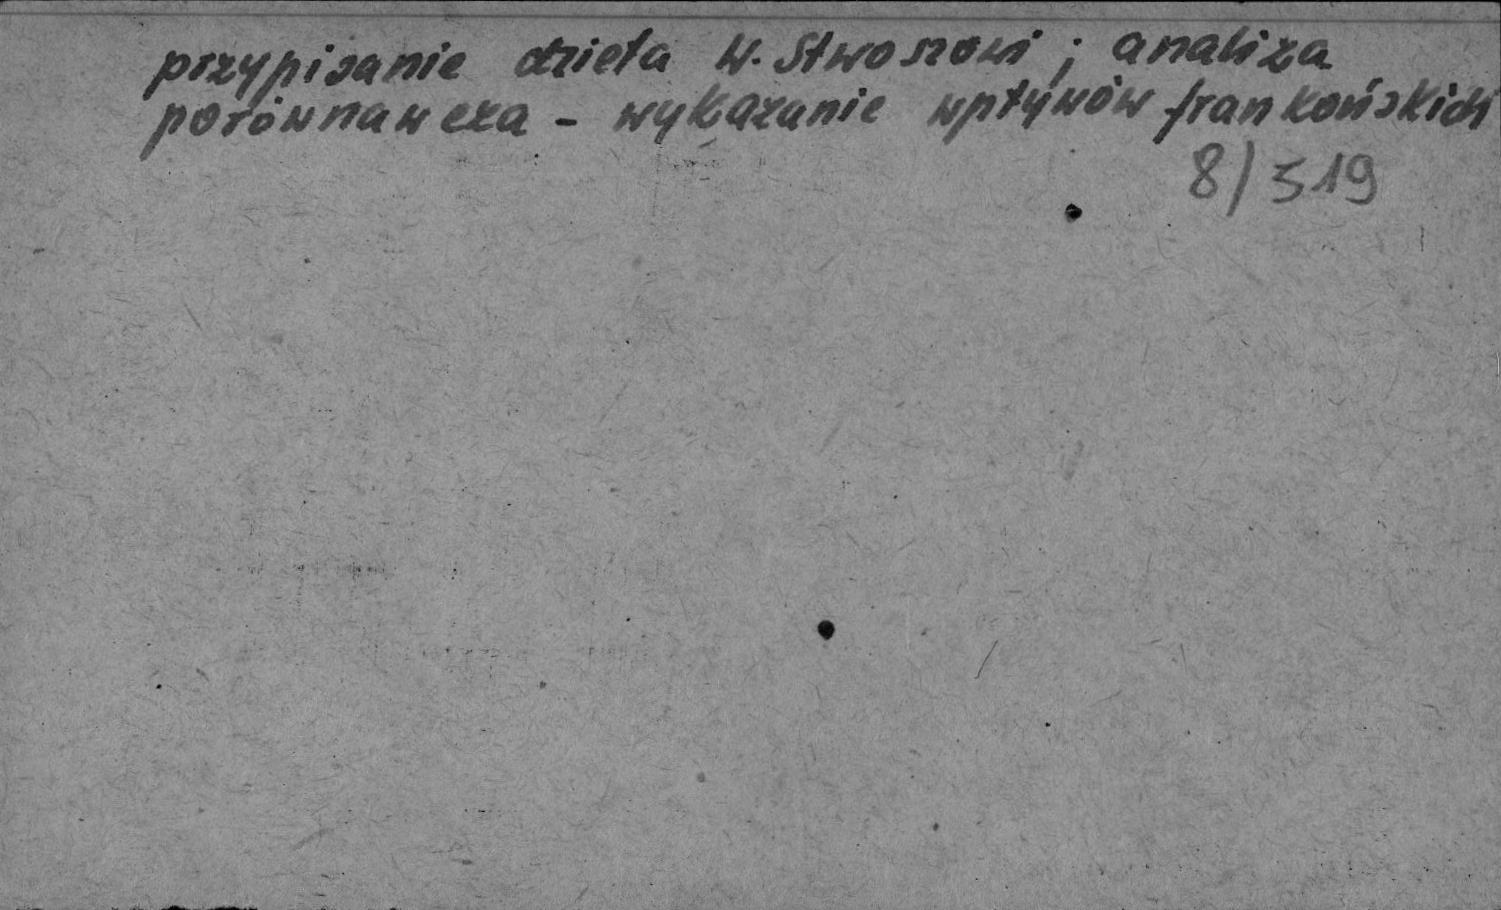 przypisanie dzieła W. Stwoszowi; analiza
porównawcza - wykazanie wpływów frankońskich
8/519